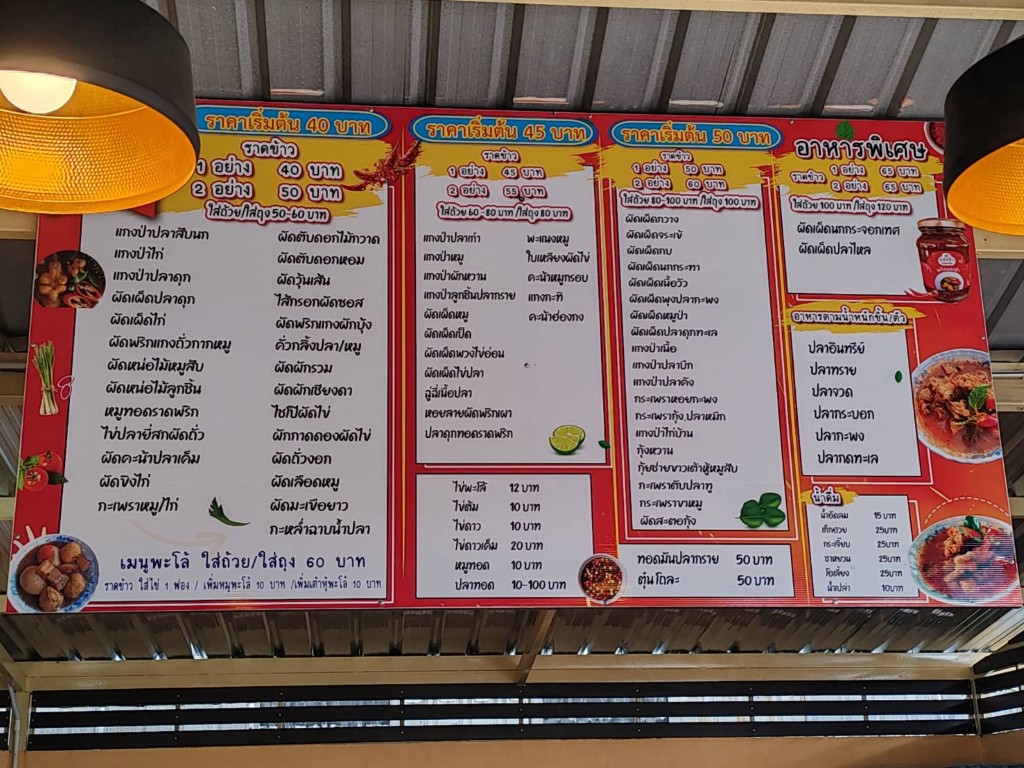 ราคาเริ่มต้น 40 บาท
ราดข้าว
1 อย่าง 40 บาท
2 อย่าง 50 บาท
ใส่ถ้วย/ใส่ถุง 50-60 บาท
แกงป่าปลาสับนก
แกงป่าไก่
แกงป่าปลาดุก
ผัดเผ็ดปลาดุก
ผัดเผ็ดไก่
ผัดพริกแกงถั่วกากหมู
ผัดหน่อไม้หมูสับ
ผัดหน่อไม้ลูกชิ้น
หมูทอดราดพริก
ไข่ปลายี่สกผัดถั่ว
ผัดคะน้าปลาเค็ม
ผัดขิงไก่
กะเพราหมู/ไก่
ผัดตับดอกไม้กวาด
ผัดตับดอกหอม
ผัดวุ้นเส้น
ไส้กรอกผัดซอส
ผัดพริกแกงผักบุ้ง
คั่วกลิ้งปลา/หมู
ผัดผักรวม
ผัดผักเชียงดา
ไชโป๊ผัดไข่
ผักกาดดองผัดไข่
ผัดถั่วงอก
ผัดเลือดหมู
ผัดมะเขือยาว
กะหล่ำฉาบน้ำปลา
เมนูพะโล้ ใส่ถ้วย/ใส่ถุง 60 บาท
ราดข้าว ใส่ไข่ 1 ฟอง / เพิ่มหมูพะโล้ 10 บาท /เพิ่มเต้าหู้พะโล้ 10 บาท
ราคาเริ่มต้น 45 บาท
ราดข้าว
1 อย่าง 45 บาท
2 อย่าง 55 บาท
ใส่ถ้วย 60-80 บาท /ใส่ถุง 80 บาท
แกงป่าปลาเก๋า
แกงป่าหมู
แกงป่าผักหวาน
แกงป่าลูกชิ้นปลากราย
ผัดเผ็ดหมู
ผัดเผ็ดเป็ด
ผัดเผ็ดพวงไข่อ่อน
ผัดเผ็ดไข่ปลา
ฉู่ฉี่เนื้อปลา
หอยลายผัดพริกเผา
ปลาดุกทอดราดพริก
พะแนงหมู
ใบเหลียงผัดไข่
คะน้าหมูกรอบ
แกงกะทิ
คะน้าฮ่องกง
ไข่พะโล้ 12 บาท
ไข่ต้ม 10 บาท
ไข่ดาว 10 บาท
ไข่ดาวเค็ม 20 บาท
หมูทอด 10 บาท
ปลาทอด 10-100 บาท
ราคาเริ่มต้น 50 บาท
ราดข้าว
1 อย่าง 50 บาท
2 อย่าง 60 บาท
ใส่ถ้วย 80-100 บาท /ใส่ถุง 100 บาท
ผัดเผ็ดกวาง
ผัดเผ็ดจระเข้
ผัดเผ็ดกบ
ผัดเผ็ดนกกระทา
ผัดเผ็ดเนื้อวัว
ผัดเผ็ดพุงปลากะพง
ผัดเผ็ดหมูป่า
ผัดเผ็ดปลาดุกทะเล
แกงป่าเนื้อ
แกงป่าปลาบึก
แกงป่าปลาคัง
กระเพราหอยกะพง
กระเพรากุ้ง,ปลาหมึก
แกงป่าไก่บ้าน
กุ้งหวาน
กุ้ยช่ายขาวเต้าหู้หมูสับ
กะเพราตับปลาทู
กระเพราขาหมู
ผัดสะตอกุ้ง
ทอดมันปลากราย 50 บาท
ตุ๋นโถละ 50 บาท
อาหารพิเศษ
ราดข้าว
1 อย่าง 65 บาท
2 อย่าง 65 บาท
ใส่ถ้วย 100 บาท /ใส่ถุง 120 บาท
ผัดเผ็ดนกกระจอกเทศ
ผัดเผ็ดปลาไหล
อาหารตามน้ำหนักชิ้น/ตัว
ปลาอินทรีย์
ปลาทราย
ปลาจวด
ปลากระบอก
ปลากะพง
ปลากดทะเล
น้ำดื่ม
น้ำอัดลม 15 บาท
เก๊กฮวย 25บาท
กระเจี๊ยบ 25บาท
ชาหยวน 25บาท
โอเลี้ยง 25บาท
น้ำเปล่า 10บาท